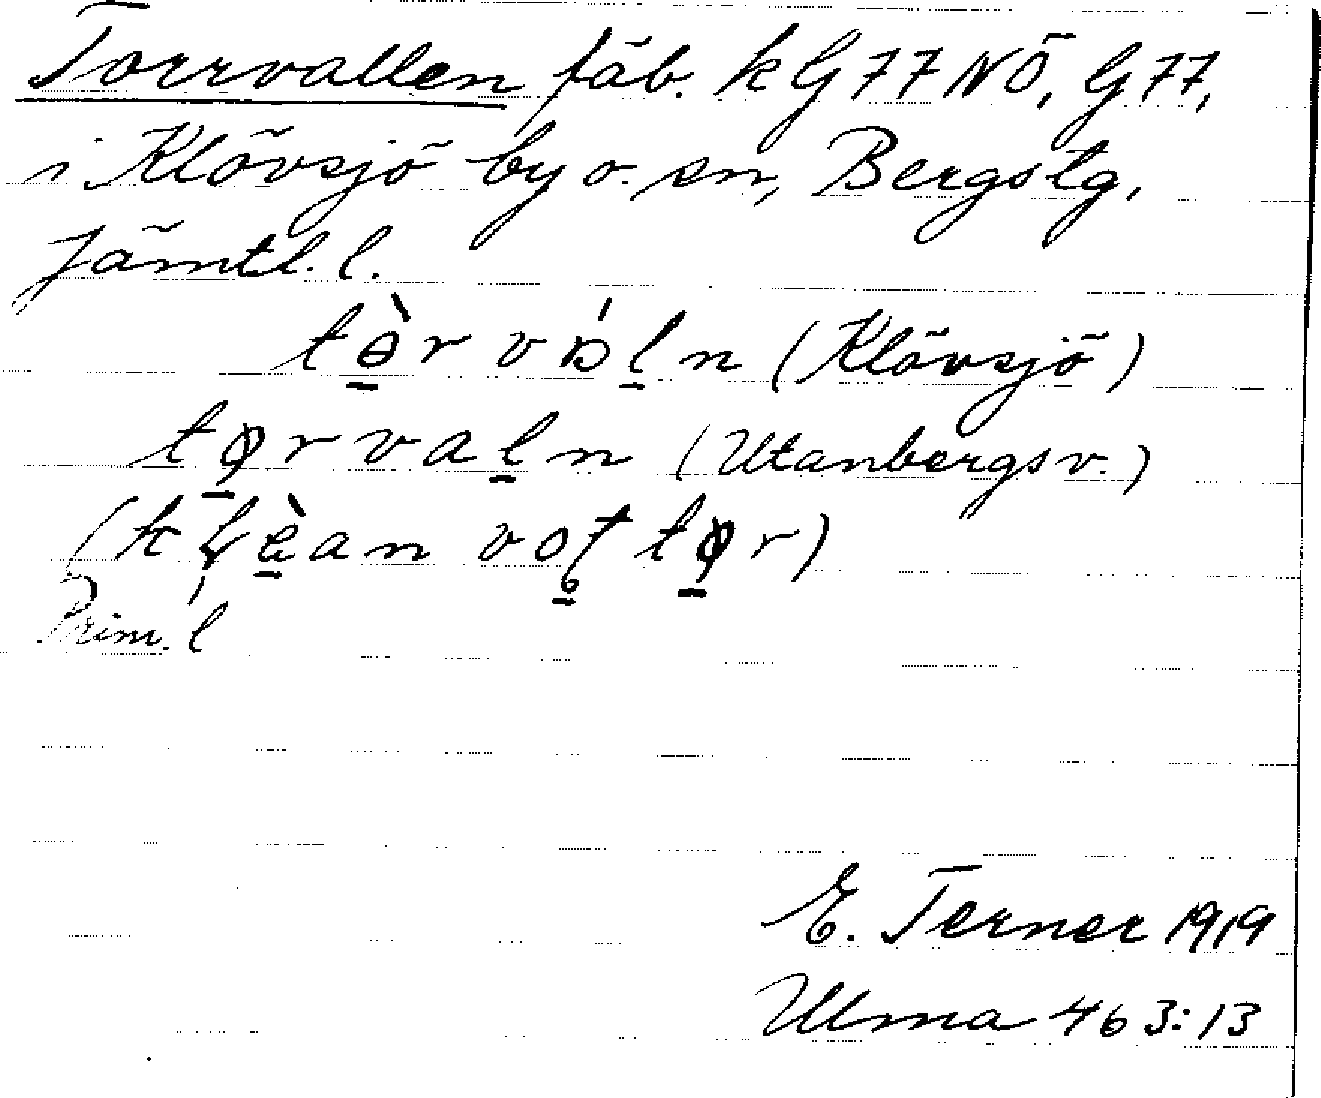 Torrvallen fäb. k G77NÖ, G77,
i Klövsjö by o. sn, Bergs tg,
Jämtl. l.
tə̱̀r vɒ́ḻn (Klövsjö)
tø̱rvaḻn (Utanbergsv.)
(tø̱r)
Prim. l
E. Terner 1919
Ulma 463:13